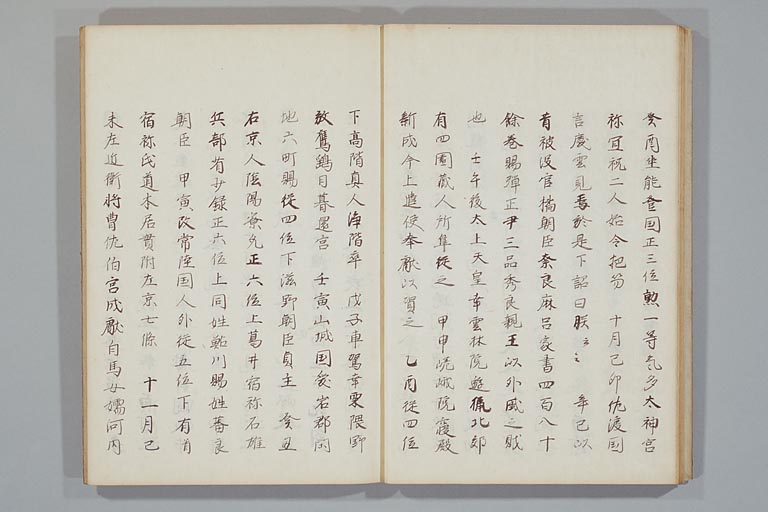 癸酉坐能登国正三位勲一等気多太神宮
祢宜祝二人始令把笏　十月己卯佐渡国
言慶雲見焉於是下詔曰朕云々　辛巳以
有被没官橘朝臣奈良麻呂家書四百八十
餘巻賜弾正尹三品秀良親王以外戚之財
也　壬午後太上天皇幸雲林院遊猟北郊
有四園蔵人所隼従之　甲申嵯峨院寝殿
新成今上遣使奉献以賀之　乙酉従四位
下高階真人浄階卒　戊子車駕幸栗隈野
放鷹鷂日暮還宮　壬寅山城国久世郡閑
地六町賜従四位下滋野朝臣貞主　癸丑
右京人陰陽寮允正六位上葛井宿祢石雄
兵部省少録正六位上同姓鮎川賜姓蕃良
朝臣　甲寅改常陸国人外従五位下有道
宿祢氏道本居貫附左京七條　十一月己
未左近衛将曹佐伯宮成献白馬女嬬河内